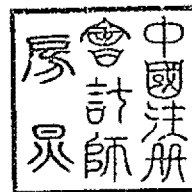 中國注册
會計師
房炅